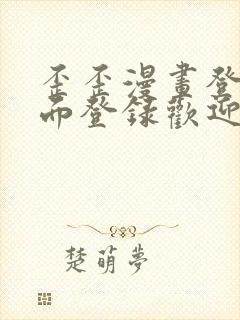 歪歪漫畫登
而登錄歡迎
楚萌夢